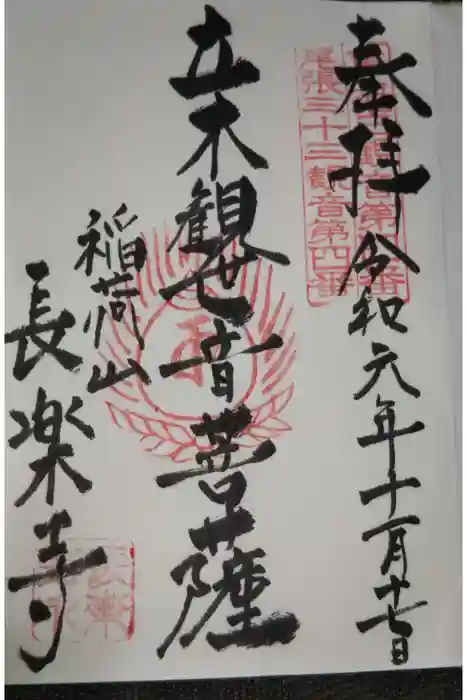 奉拝
令和元年十一月十七日
尾張三十三観音第四番
立木観世音菩薩
稲荷山
長楽寺